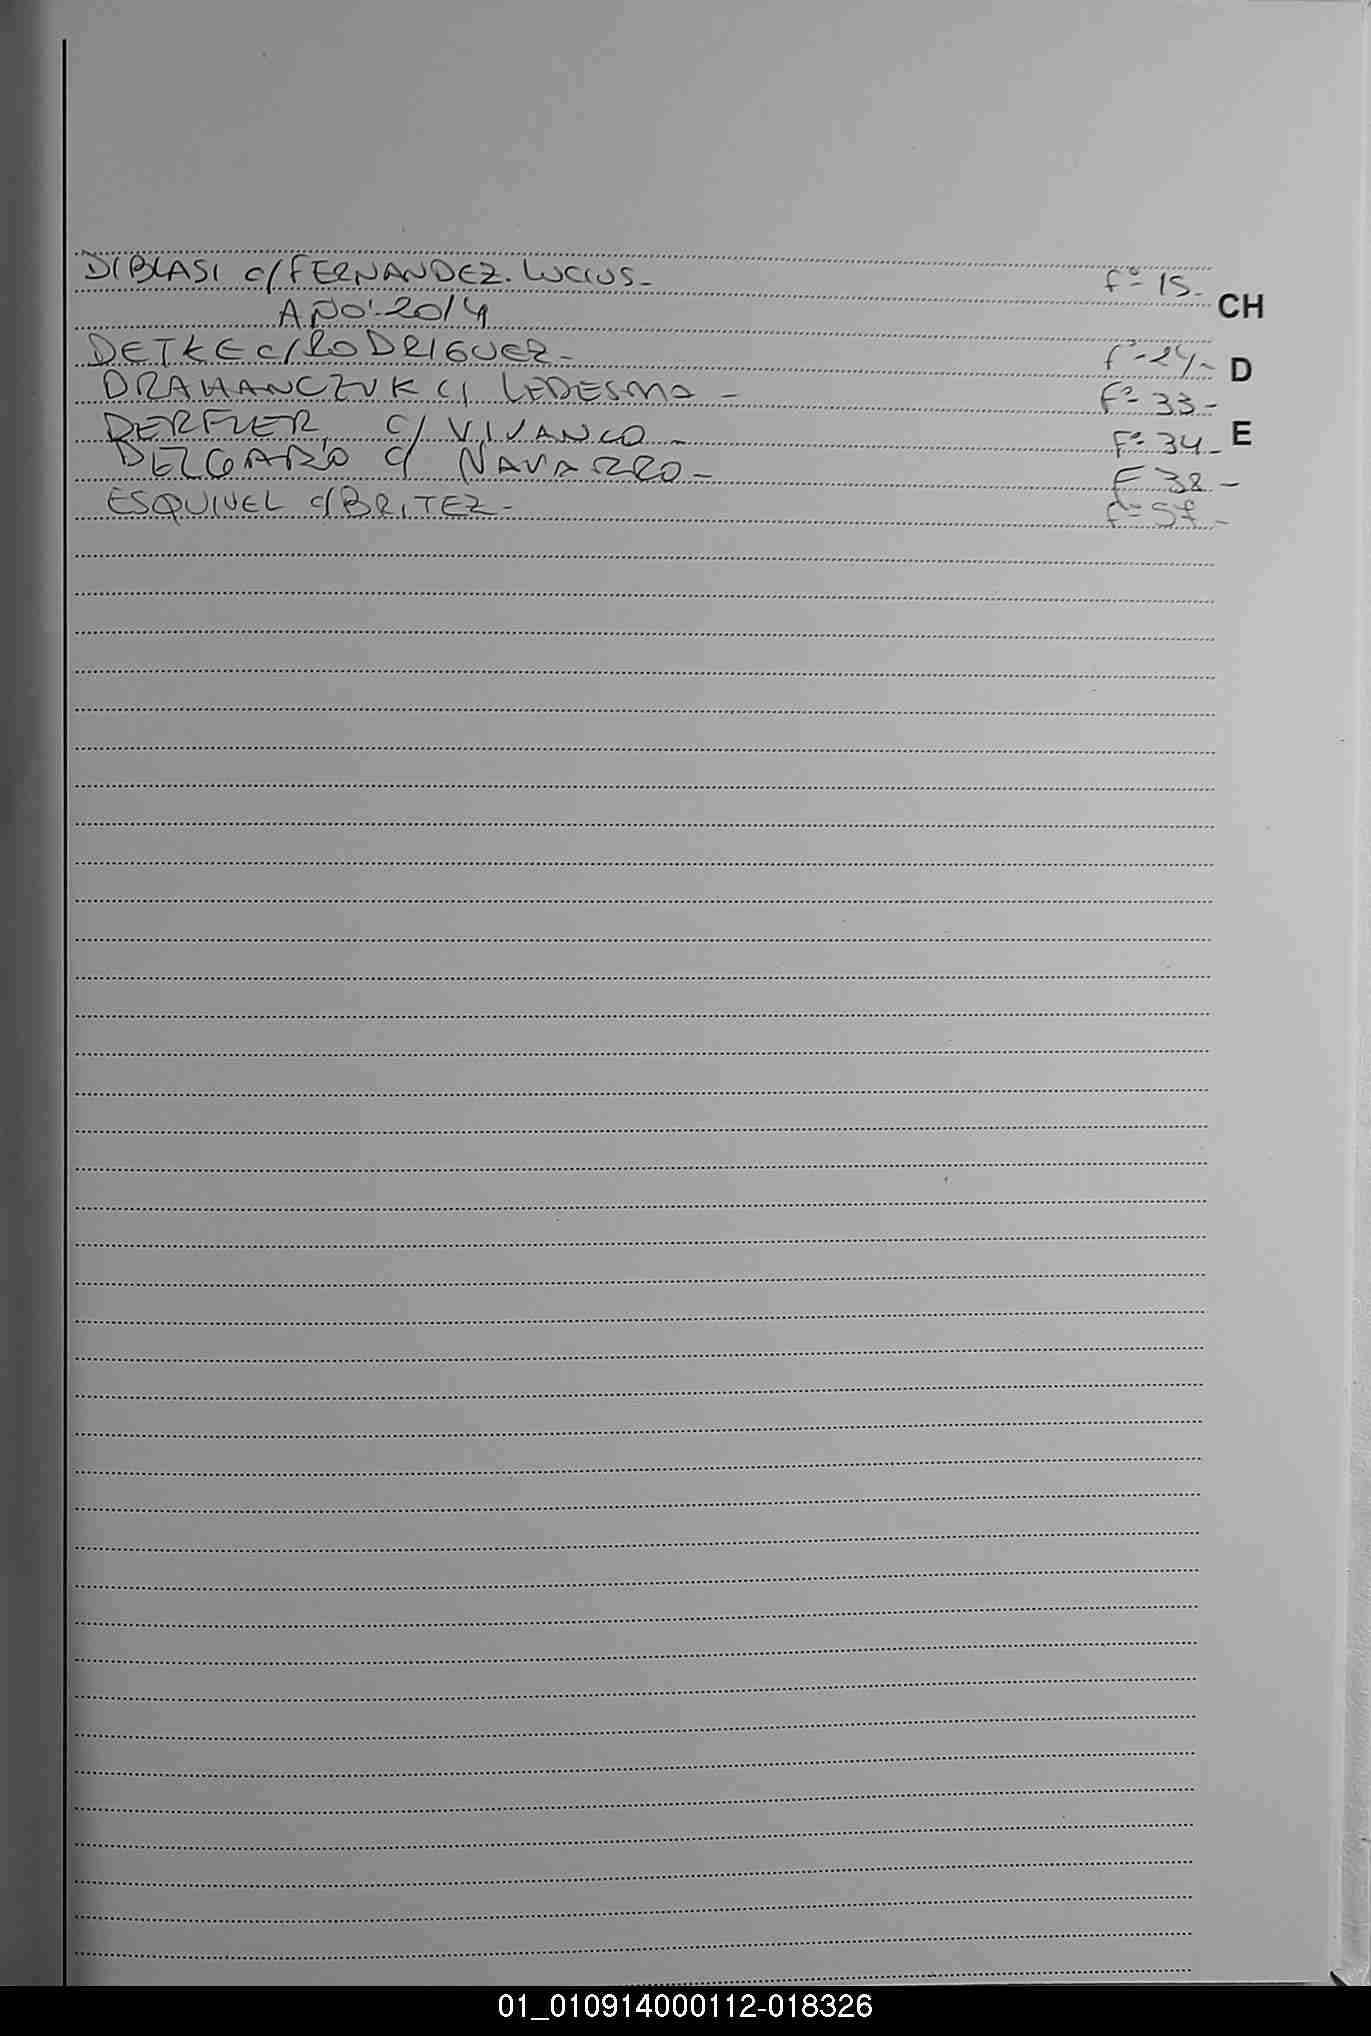 DIBLASI c/ FERNANDEZ. LUCIUS- Fº 15-
CH
AÑO: 2014
DETKE c/ RODRIGUEZ- Fº 24-
D
DRAHANCZUK c/ LEDESMA - Fº 33-
DERFLER c/ VIVANCO - Fº 34-
E
DELGADO c/ NAVARRO - F 38 -
ESQUIVEL c/ BRITEZ- Fº 57-
01_010914000112-018326